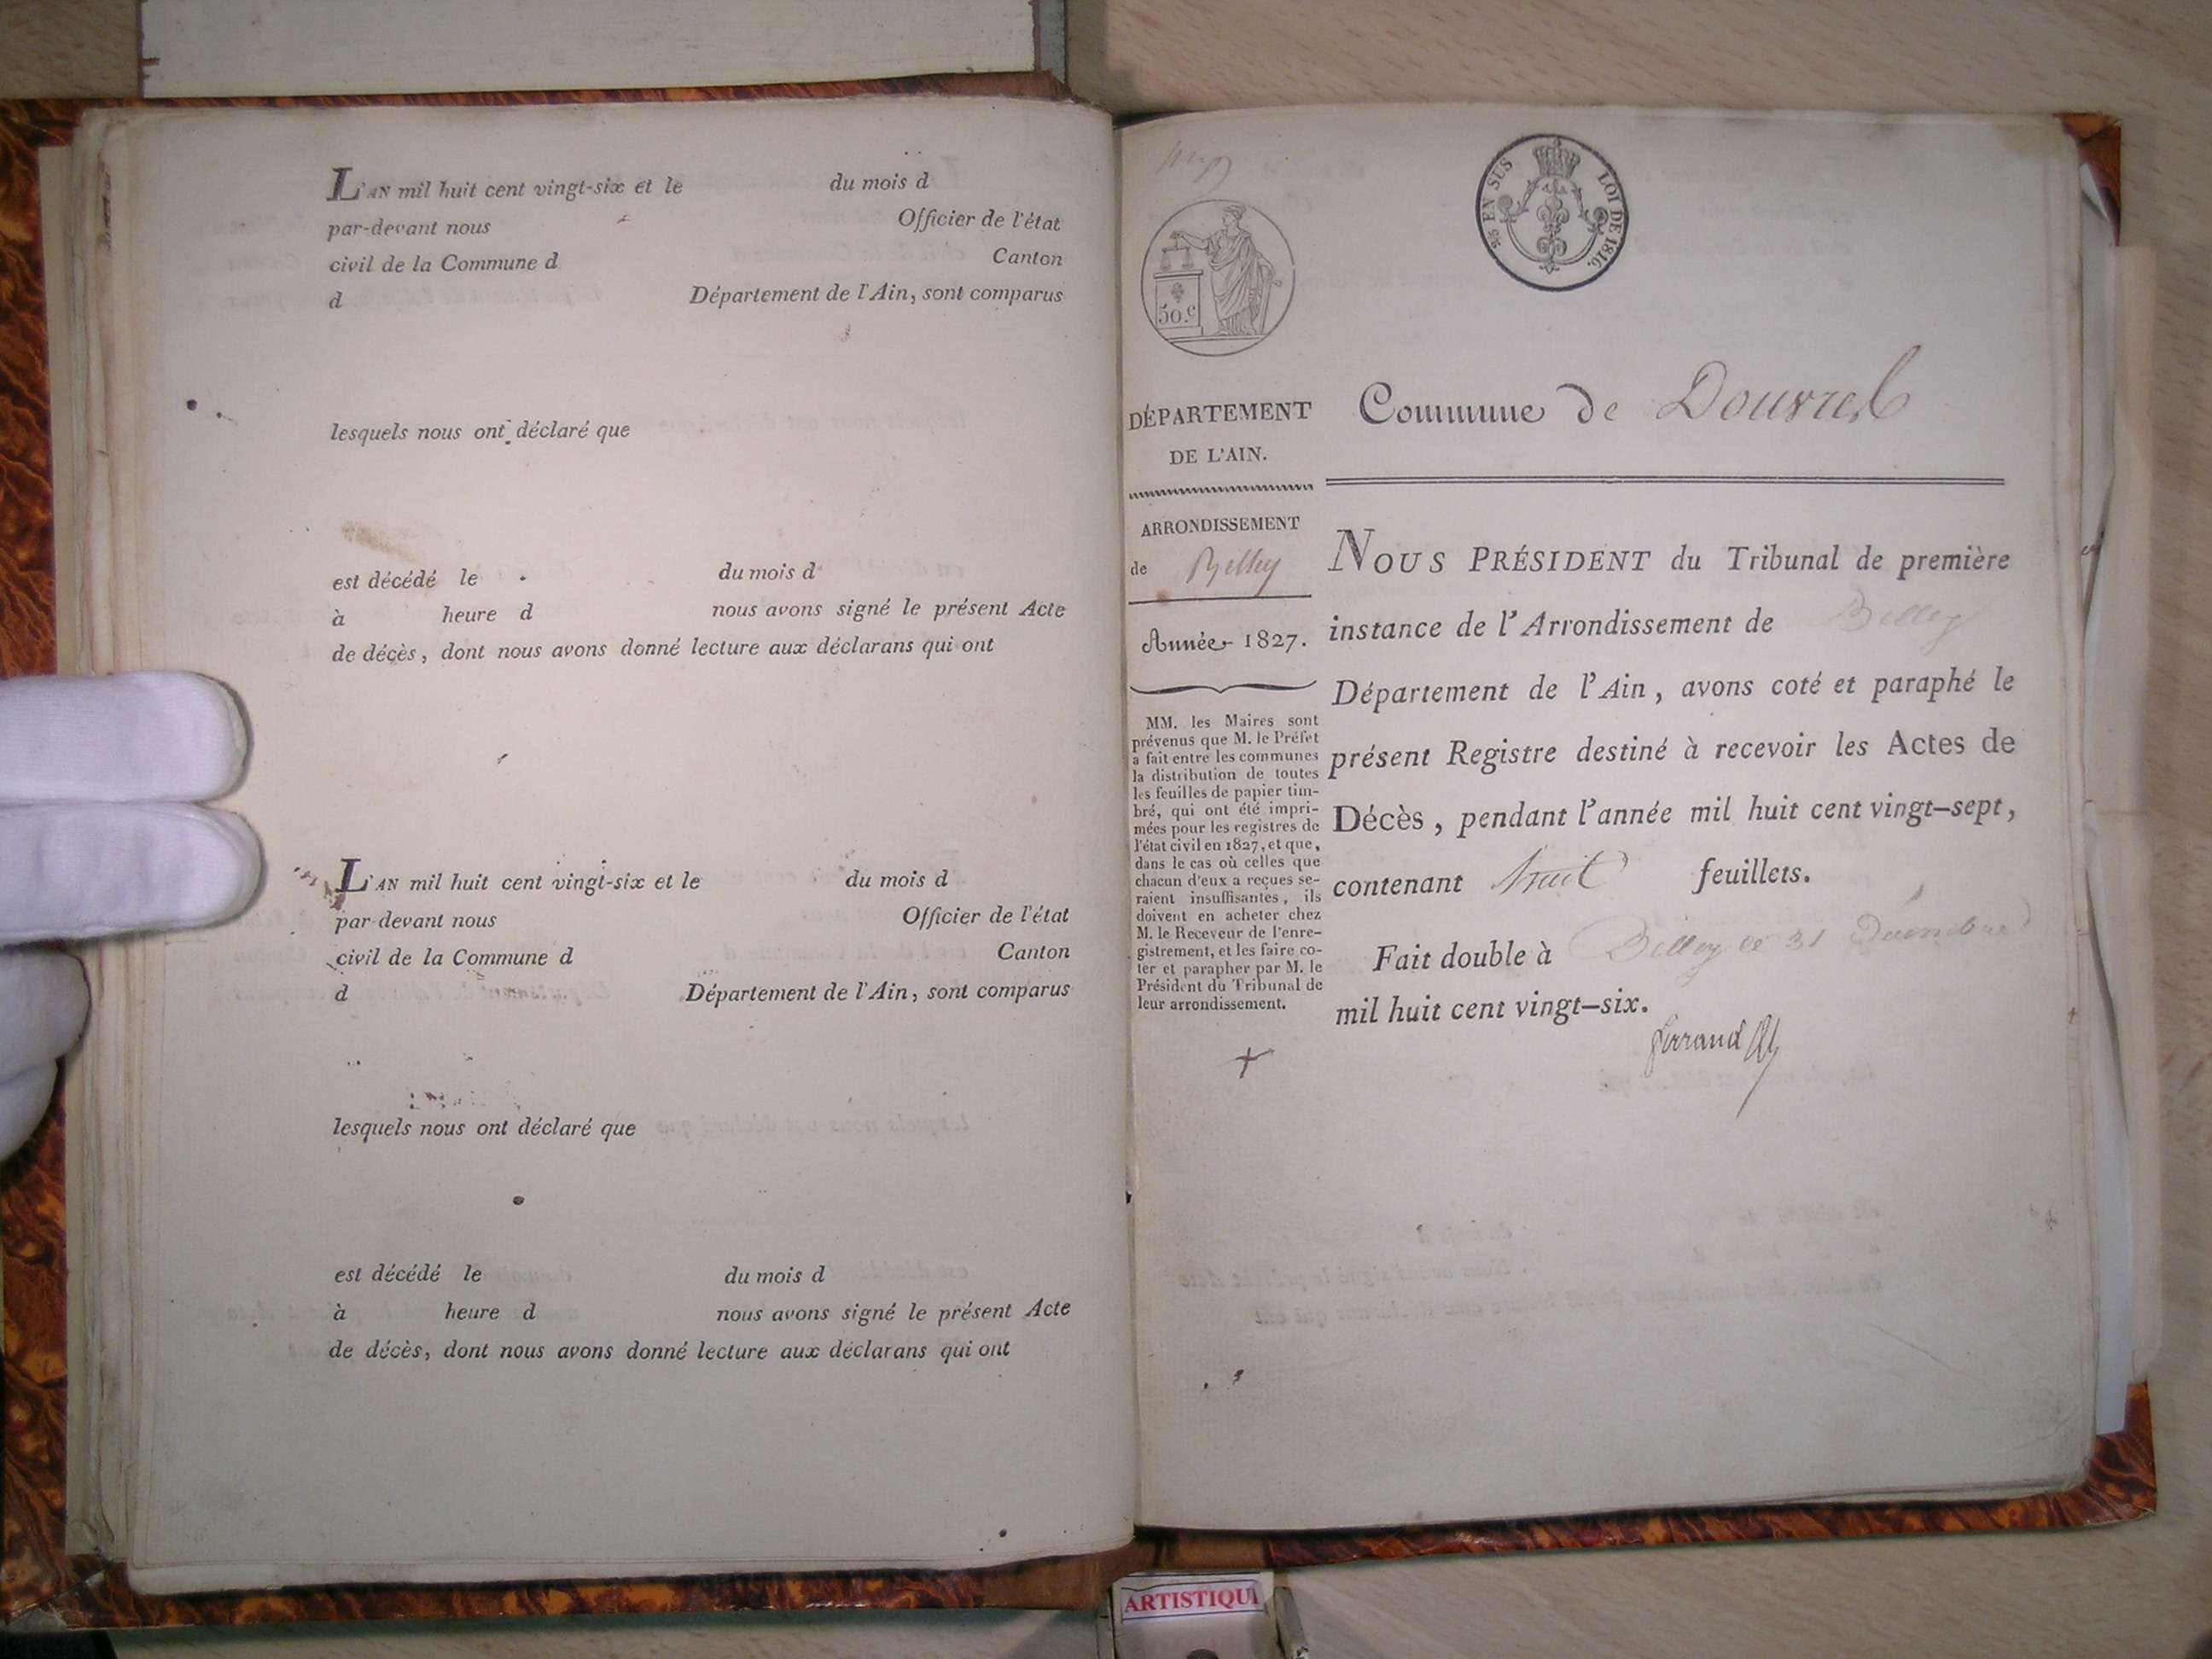 L'AN mil huit cent vingt-six et le du mois d
par-devant nous Officier de l'état
civil de la Commune d Canton
d Département de l'Ain, sont comparus
lesquels nous ont déclaré que
est décédé le du mois d
à heure d nous avons signé le présent Acte
de décès, dont nous avons donné lecture aux déclarans qui ont
L'AN mil huit cent vingt-six et le du mois d
par-devant nous Officier de l'état
civil de la Commune d Canton
d Département de l'Ain, sont comparus
lesquels nous ont déclaré que
est décédé le du mois d
à heure d nous avons signé le présent Acte
de décès, dont nous avons donné lecture aux déclarans qui ont
EN SUS LOI DE 1816.
50.c
DÉPARTEMENT
DE L'AIN.
ARRONDISSEMENT
de Belley
Année 1827.
MM. les Maires sont
prévenus que M. le Préfet
a fait entre les communes
la distribution de toutes
les feuilles de papier tim-
bré, qui ont été impri-
mées pour les registres de
l'état civil en 1827, et que,
dans le cas où celles que
chacun d'eux a reçues se-
raient insuffisantes, ils
doivent en acheter chez
M. le Receveur de l'enre-
gistrement, et les faire co-
ter et parapher par M. le
Président du Tribunal de
leur arrondissement.
Commune de Douvres
NOUS PRÉSIDENT du Tribunal de première
instance de l'Arrondissement de Belley
Département de l'Ain, avons coté et paraphé le
présent Registre destiné à recevoir les Actes de
Décès, pendant l'année mil huit cent vingt-sept,
contenant huit feuillets.
Fait double à Belley le 31 Décembre
mil huit cent vingt-six.
ferrand
ARTISTIQU